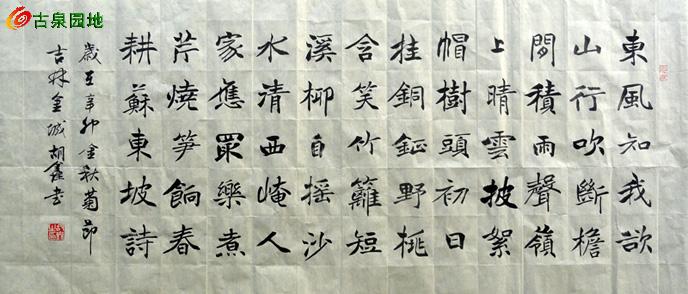 古泉园地
東風知我欲
山行吹斷檐
間積雨聲嶺
上晴雲披絮
帽樹頭初日
挂銅鉦野桃
含笑竹籬短
溪柳自摇沙
水清西崦人
家應眾樂煮
芹燒笋餉春
耕蘇東坡詩
歲在辛卯金秋菊節
吉林金城胡鑫书